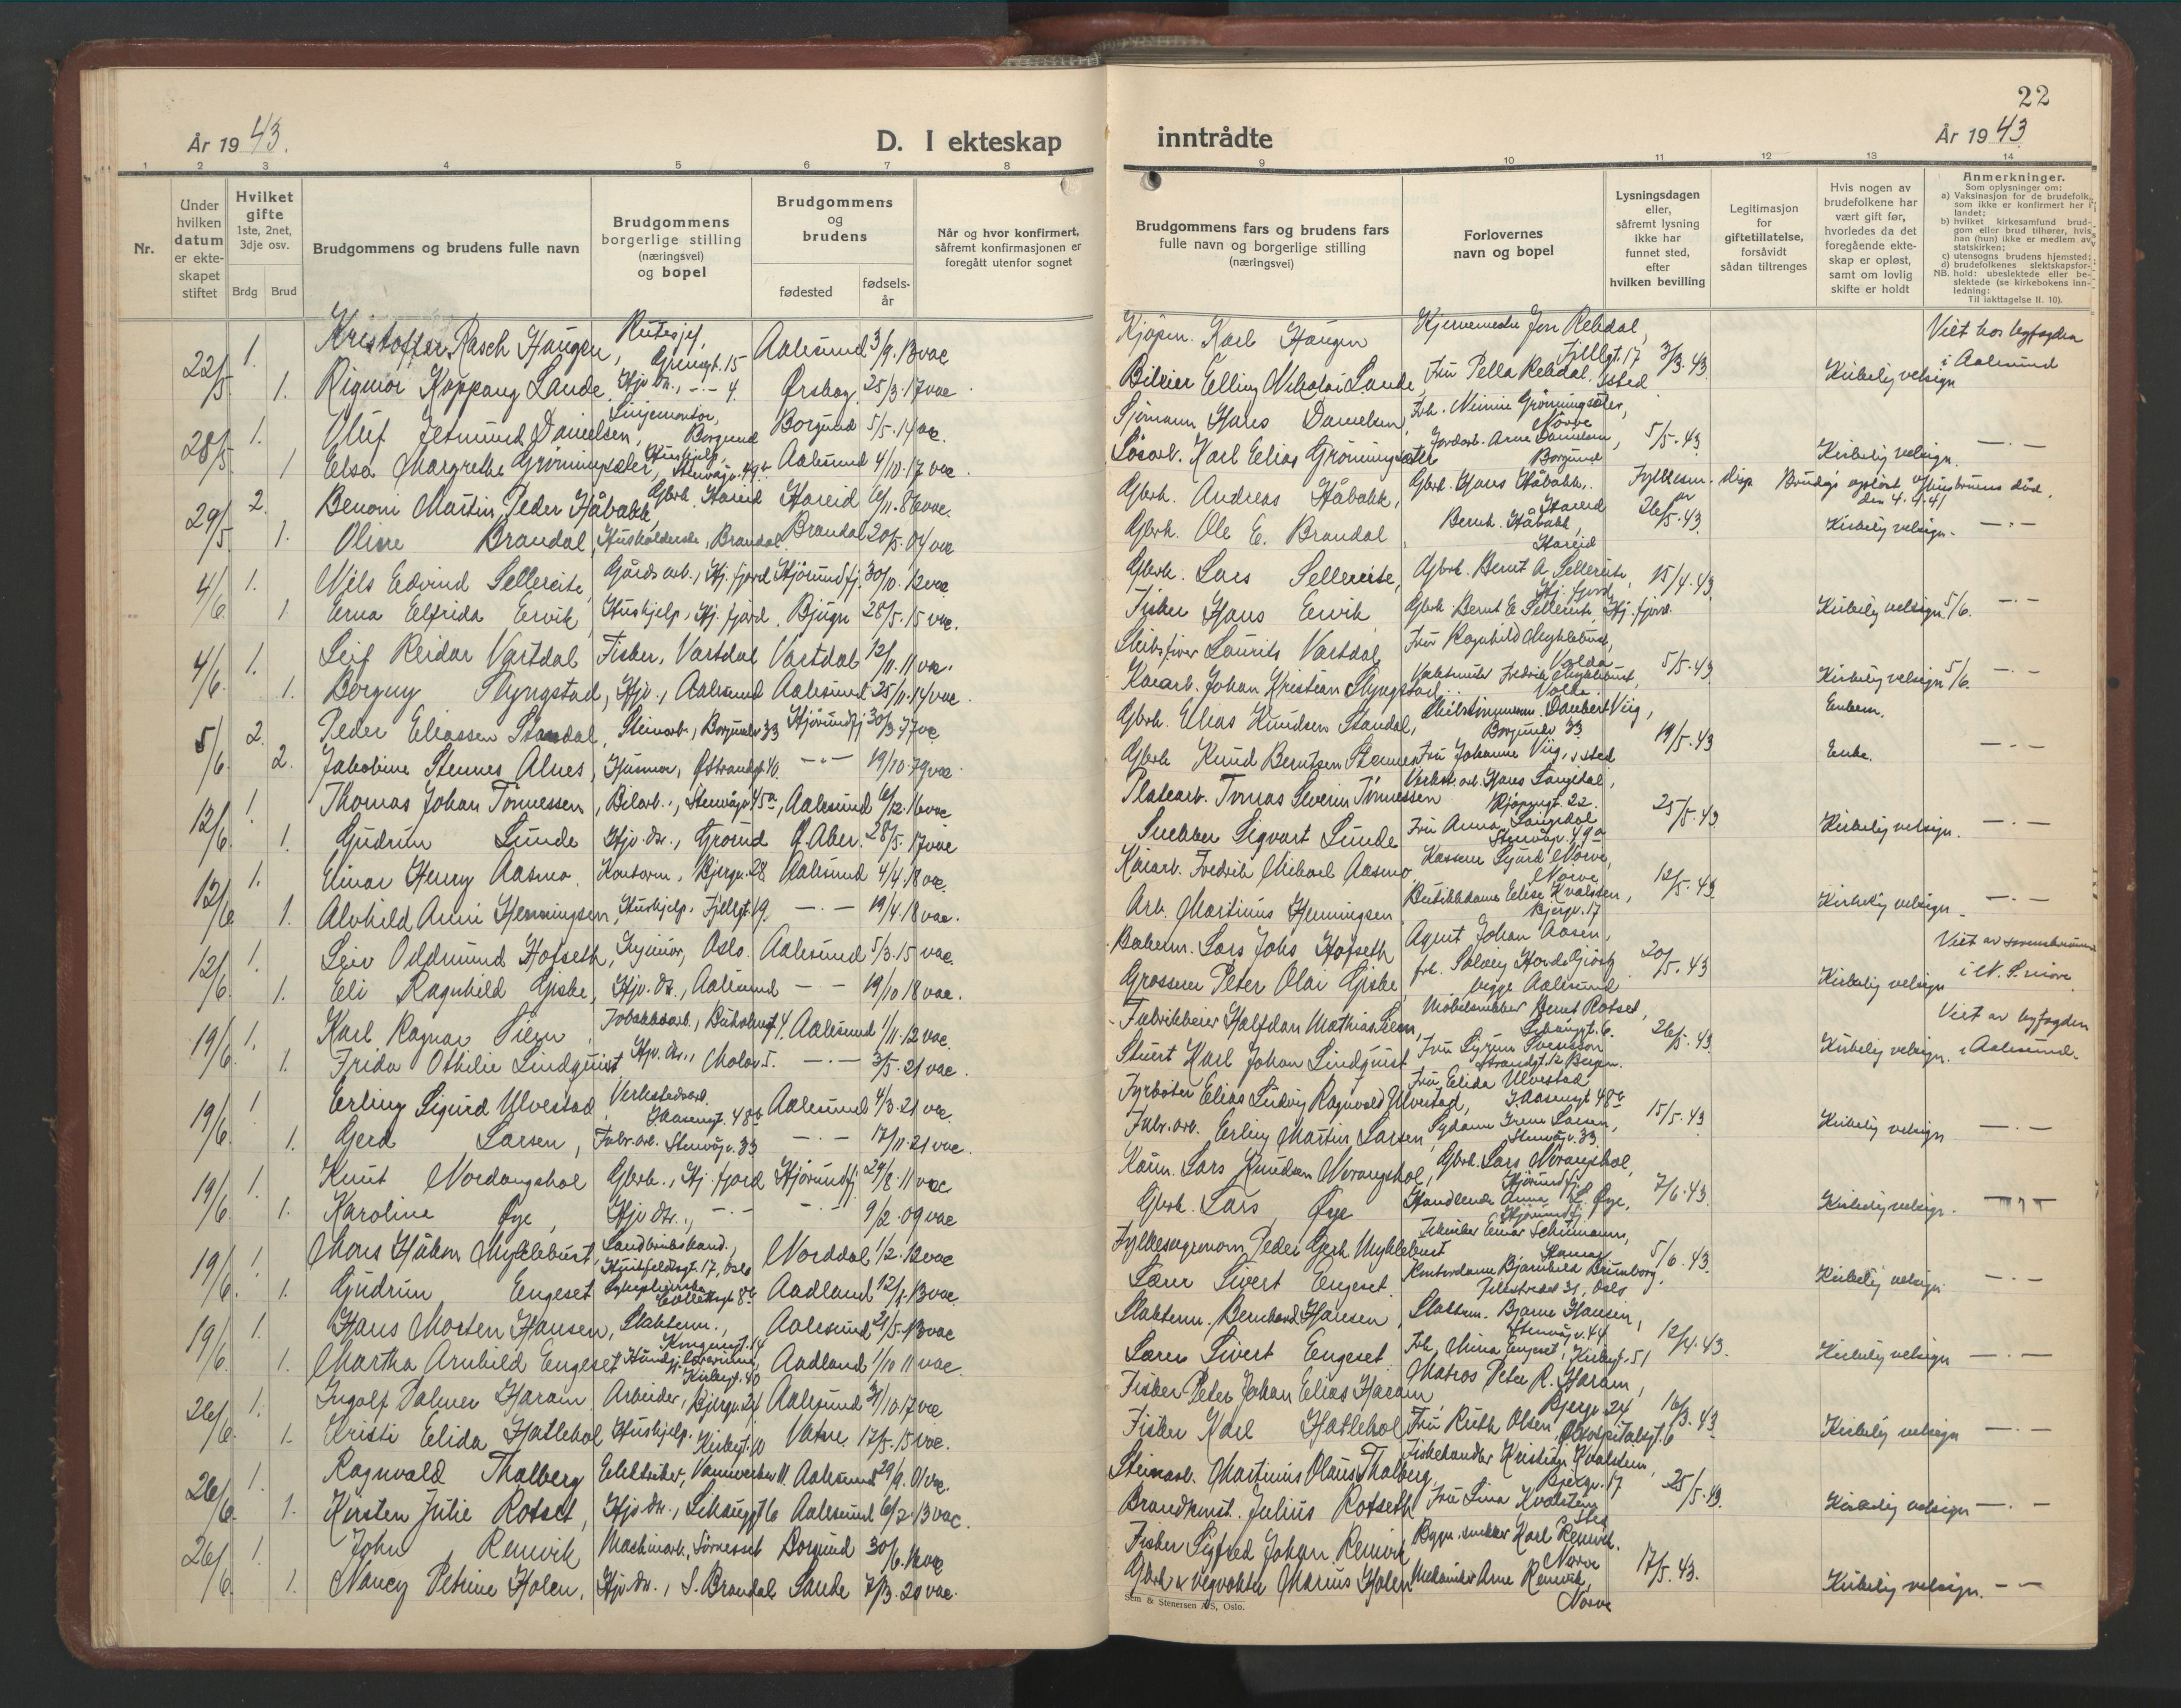 22
År 1943.
D. I ekteskap
inntrådte
År 1943
1 2 3 4 5 6 7 8 9 10 11 12 13 14
Nr.
Under hvilken datum er ekteskapet stiftet
Hvilket gifte 1ste, 2net, 3dje osv.
Brdg Brud
Brudgommens og brudens fulle navn
Brudgommens borgerlige stilling (næringsvei) og bopel
Brudgommens og brudens
fødested
fødselsår
Når og hvor konfirmert, såfremt konfirmasjonen er foregått utenfor sognet
Brudgommens fars og brudens fars fulle navn og borgerlige stilling (næringsvei)
Forlovernes navn og bopel
Lysningsdagen eller, såfremt lysning ikke har funnet sted, efter hvilken bevilling
Legitimasjon for giftetillatelse, forsåvidt sådan tiltrenges
Hvis nogen av brudefolkene har vært gift før, hvorledes da det foregående ekteskap er opløst, samt om lovlig skifte er holdt
Anmerkninger.
Som oplysninger om:
a) Vaksinasjon for de brudefolk, som ikke er konfirmert her i landet;
b) hvilket kirkesamfund brudgom eller brud tilhører, hvis han (hun) ikke er medlem av statskirken;
c) utensogns brudens hjemsted;
d) brudefolkenes slektskapsforhold: ubeslektede eller beslektede (se kirkebokens innledning:
NB.
Til iakttagelse II. 10).
22/5 1. Kristoffer Rasch Haugen, Rutesjef, Grensgt. 15 Aalesund 3/9. 13 vac Kjøpm. Karl Haugen Fjellgt. 17 3/3. 43. Viet hos byfogden
1. Rigmor Koppang Lande, Hjv. dr., -.- 4. Ørskog 25/3. 17 vac. Elling Nikolai Lande, Fru Pella Rekdal, Isted Kirkelig velsign i Aalesund
28/5 1. Oluf Jermund Danielsen, Linjemontør, Borgund Borgund 5/5. 14 vac. Sjømann Hans Danielsen, Nørve 5/5. 43
1 Elsa Margrethe Grønningsæter, Hushjelp, Aalesund 4/10. 17 vac. Karl Elias Grønningsæter Borgund Kirkelig velsign. -.-
29/5 2. Benoni Martin Peder Håbakk, Gbrk. Hareid Hareid 6/11. 86 vac. Gbrk. Andreas Håbakk, Gbrk. Hans Håbakk, Hareid Fylkesm. disp 26/5. 43 den 4.4.41
1. Oline Brandal, Husholderske, Brandal Brandal 20/5. 04 vac Gbrk. Ole E. Brandal Bernh. Håbakk, Hareid Kirkelig velsign. -.-
4/6 1. Nils Edvind Sellereite, Gårdsarb., Hj.fjord Hjørundfj. 30/10. 12 vac Gbrk. Lars Sellereite, Gbrk. Bernt A Sellereite, Hj.fjord 15/4. 43.
1 Erna Elfrida Ervik, Hushjelp, Hj.fjord. Bjugn 28/5. 15 vac. Fisker Hans Ervik Gbrk. Bernt E Sellereite, Hj.fjord. Kirkelig velsign 5/6. -.-
4/6. 1. Leif Reidar Vartdal Fisker, Vartdal Vartdal 12/11. 11 vac. Laurits Vartdal, Fru Ragnhild Myklebust, Volda 5/5. 43
1. Borgny Slyngstad, Hjv., Aalesund Aalesund 25/11. 14 vac. Kaiarb. Johan Kristian Slyngstad Fredrik Myklebust, Volda. Kirkelig velsign 5/6. -.-
5/6. 2. Peder Eliassen Standal, Steinarb., Borgundv. 33 Hjørundfj 30/3 77 vac Gbrk. Elias Knudsen Standal, Daubert Viig, Borgundv 33 19/5. 43 Enkem.
2. Jakobine Stennes Alnes, Husmor, Østrandgt. 10. -.- 19/10. 79 vac. Gbrk Knud Berntsen Stennes Fru Johanne Viig, isted Enke. -.-
12/6. 1. Thomas Johan Tønnessen, Bilarb., Stenvågv. 45a, Aalesund 6/12. 16 vac Platearb. Tomas Severin Tønnessen Verkst. arb. Hans Langedal, 25/5. 43
1. Gudrun Lunde Hjv. dr., Grorud Ø Aker. 28/5. 17 vac Snekker Sigvart Lunde Fru Anna Langedal Stenvågv. 49a Kirkelig velsign. -.-
12/6 1. Einar Henry Aasmo. Kontorm., Bjergv. 28 Aalesund 4/4. 18 vac. Kaiarb. Fredrik Mikael Aasmo Kasserer Sjurd Nørve, Nørve 12/5. 43.
1. Alvhild Anni Henningsen, Hushjelp. Fjellgt. 19. -.- 19/4. 18 vac. Arb. Martinus Henningsen Butikkdame Elise Kvalsten, Bjergv. 17 Kirkelig velsign. -.-
12/6. 1. Leiv Oddmund Hofseth, Ingeniør, Oslo. Aalesund 5/3. 15 vac. Bakerm. Lars Johs Hofseth Agent Johan Aasen, 20/5. 43 Viet av
1. Eli Ragnhild Giske, Hjv. dr., Aalesund -.- 19/10 18 vac. Grosserer Peter Olai Giske, begge Aalesund Kirkelig velsign
19/6. 1. Karl Ragnar Siem, Aalesund 1/11. 12 vac. Fabrikkeier Halfdan Mathias Siem, Møbelsnekker Bernt Rotset, 26/5. 43. Viet av byfogden
1. Frida Othilie Lindquist, Hjv. dr., Molov 5. -.- 3/5. 21 vac. Stuert Karl Johan Lindquist Strandgt. 12 Bergen. Kirkelig velsign. i Aalesund.
19/6. 1 Erling Sigurd Ulvestad, Verkstedarb. I. Aasengt. 48b Aalesund 4/3. 21 vac. Fyrbøter Elias Ludvig Ragnvald Ulvestad, Fru Elida Ulvestad I. Aasengt 48b 15/5. 43
1. Gerd Larsen, Fabr. arb. Stenvågv. 33 -.- 17/11. 21 vac. Fabr. arb. Erling Martin Larsen, Sydame Irene Larsen, Stenvågv. 33. Kirkelig velsign -.-
19/6. 1. Knut Nordangshol Gbrk., Hj.fjord Hjørundfj. 24/8. 11 vac. Lars Knudsen Norangshol, Gbrk. Lars Norangshol, Hjørundfj 7/6. 43.
1. Karoline Øye, Hjv. dr., -.- -.- 9/2. 09 vac Gbrk. Lars Øye Handlende Anna L. Øye, Hjørundfj Kirkelig velsign.
19/6. 1. Mons Håkon Myklebust, Huitfeldtsgt. 17, Oslo Norddal 1/2. 12 vac Fylkesagronom Peder Gjerh. Myklebust Tekniker Einar Schumann, Hamar 5/6. 43.
1. Gudrun Engeset Sykepleierske Aadland 12/1. 13 vac. Lærer Sivert Engeset. Kontordame Bjarnhild Brunborg, Pilestredet 31, Oslo Kirkelig velsign -.-
19/6. 1. Hans Morten Hansen, Slakterm., Kongensgt. 14 Aalesund 21/5. 13 vac Slakterm. Bernhard Hansen, Slakterm. Bjarne Hansen, Stenvågv. 44 12/4. 43.
1. Martha Arnhild Engeset Kirkegt. 40 Aadland 1/10 11 vac. Lærer Sivert Engeset Frk. Mina Engeset, Kirkegt. 51 Kirkelig velsign -.-
26/6. 1. Ingolf Palmer Haram Arbeider, Bjergv. 24 Aalesund 31/10. 17 vac Fisker Peter Johan Elias Haram, Matros Peter R. Haram, Bjergv. 24 16/3. 43
1. Kristi Elida Hatlehol Hushjelp. Kirkegt. 10 Vatne 17/5. 15 vac. Fisker Karl Hatlehol Fru Ruth Olsen, Kirkelig velsign -.-
26/6. 1. Ragnvald Thalberg Elektriker, Aalesund 29/9. 01 vac. Steinarb. Martinius Olaus Thalberg, Fiskehandler Kristian Kvalsten, Bjergv. 17 25/5. 43.
1. Kirsten Julie Rotset, Hjv. dr., Schauggt 6 Aalesund 6/2. 13 vac. Brandkonst. Julius Rotseth Fru Lina Kvalsten Isted Kirkelig velsign -.-
26/6. 1. John Remvik Maskinarb., Sørneset Borgund 30/6. 16 vac Fisker Sigfred Johan Remvik Bygn. snekker Karl Remvik. Nørve 17/5. 43.
1. Nancy Petrine Holen, Hjv. dr., S. Brandal Sande 7/3. 20 vac. Gbrk & vegvokter Marius Holen Mekaniker Arne Remvik, Nørve Kirkelig velsign. -.-
Sem & Stenersen A/S, Oslo.